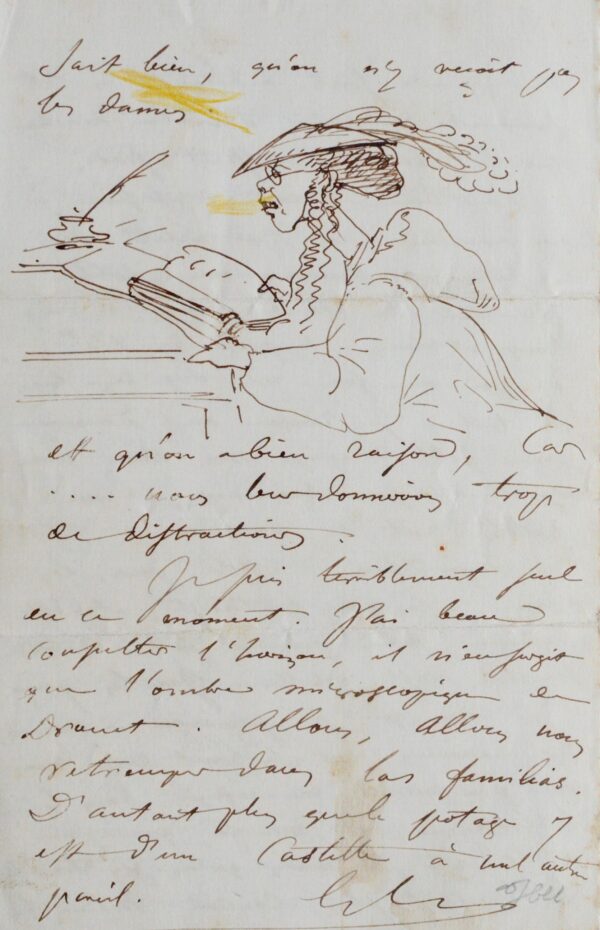 sait bien, qu'on n'y reçoit pas
les dames
et qu'on a bien raison, Car
.... nous leur donnerions trop
de distractions.
Je suis terriblement seul
en ce moment. J'ai beau
consulter l'horizon, il n'en surgit
que l'ombre microscopique de
Allons, Allons nous
retremper dans las familias.
D'autant plus que le potage y
est d'un Castille à nul autre
pareil.